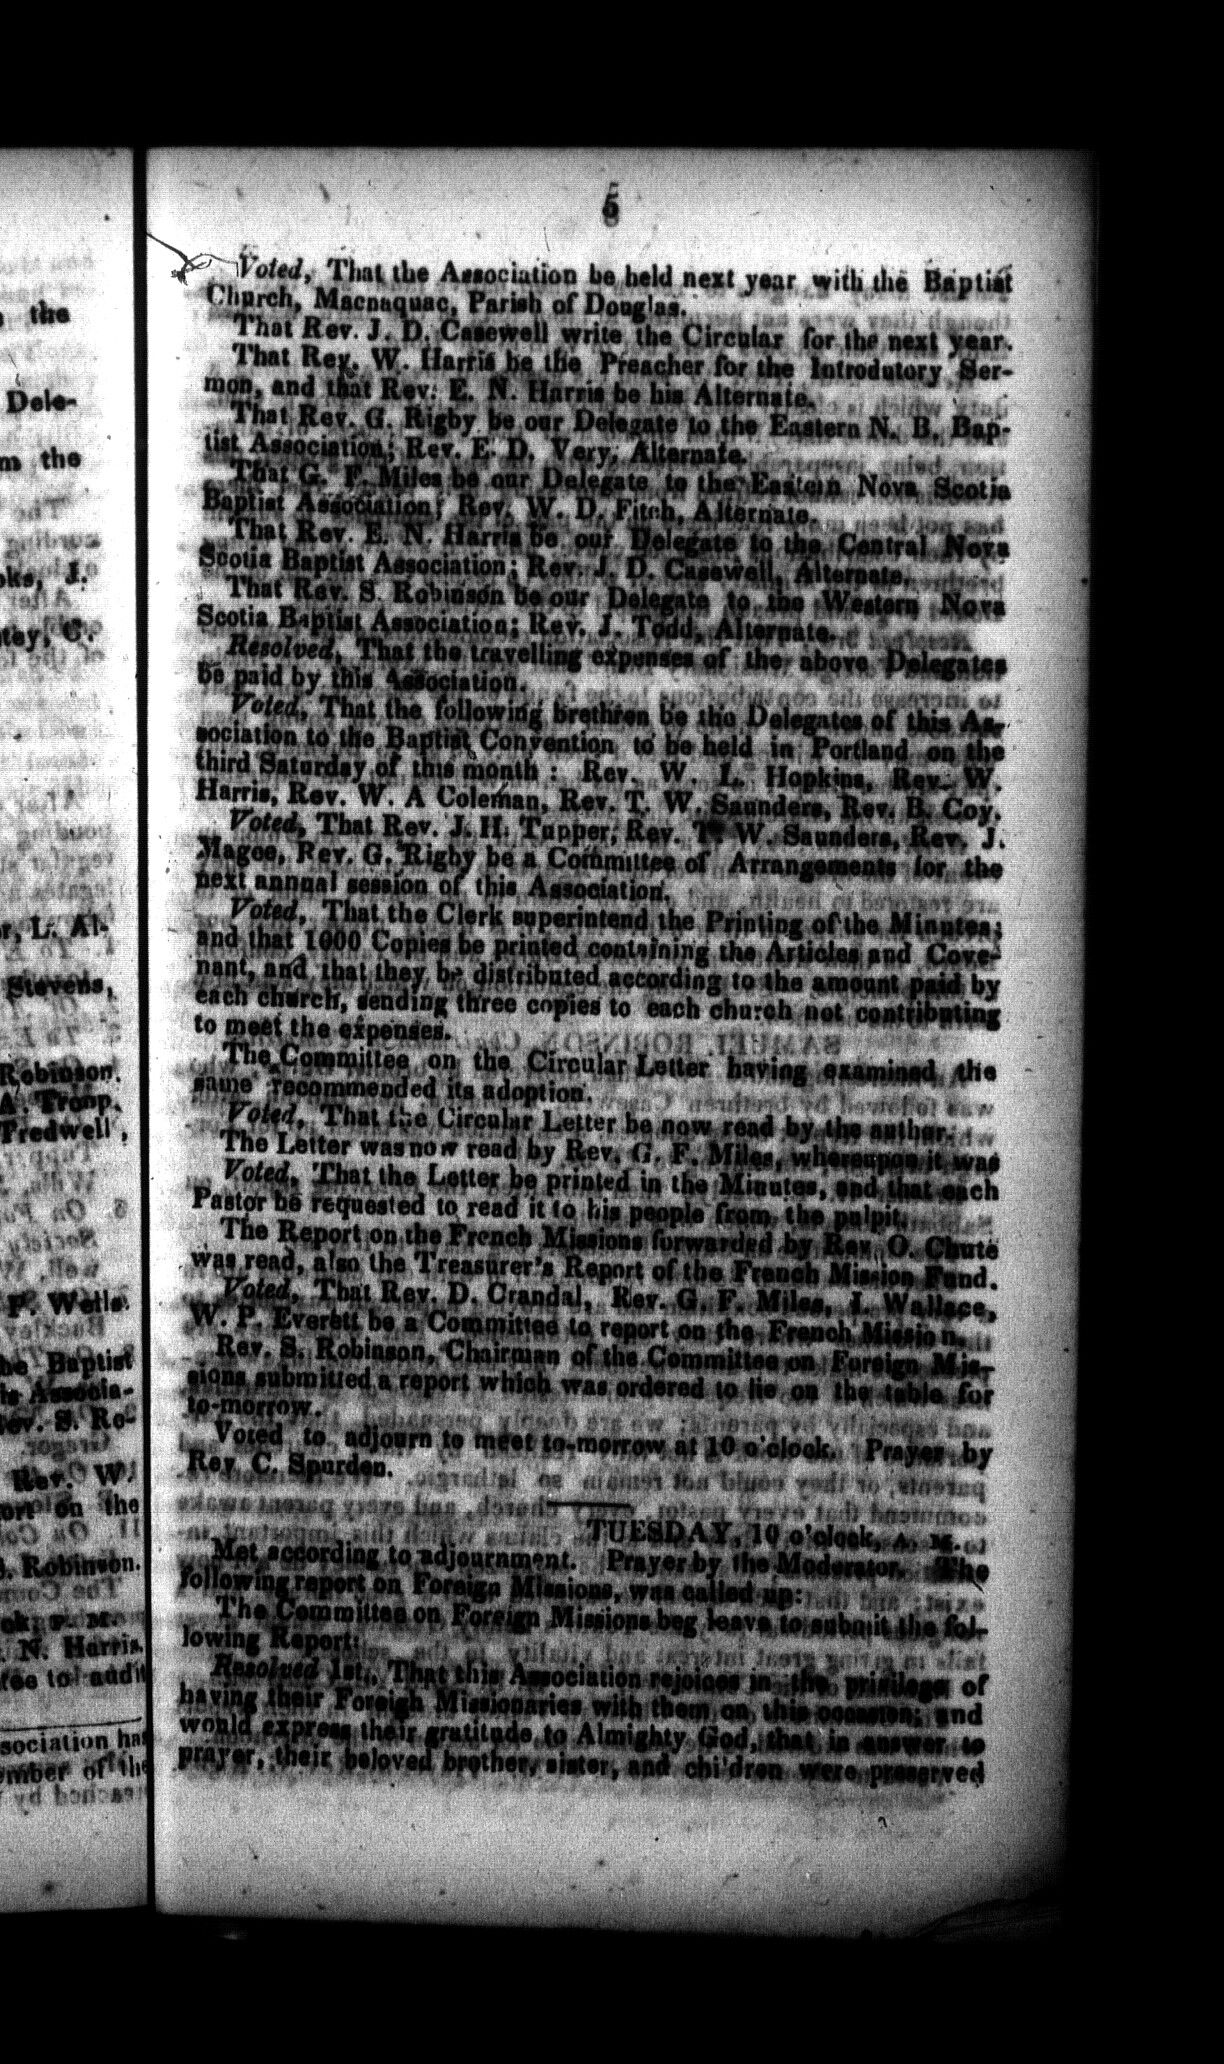 5
Voted, That the Association be held next year with the Baptist
Church, Macnaquac, Parish of Douglas.
That Rev. J. D. Casewell write the Circular for the next year.
That Rev. W. Harris be the Preacher for the Introdutory Ser-
mon, and that Rev. E. N. Harris be his Alternate.
That Rev. G. Rigby be our Delegate to the Eastern N. B. Bap-
tist Association; Rev. E. D. Very, Alternate.
That G. F. Miles be our Delegate to the Eastern Nova Scotia
Baptist Association; Rev. W. D. Fitch, Alternate.
That Rev. E. N. Harris be our Delegate to the Central Nova
Scotia Baptist Association; Rev. J. D. Casewell, Alternate.
That Rev. S. Robinson be our Delegate to the Western Nova
Scotia Baptist Association; Rev. J. Todd, Alternate.
Resolved, That the travelling expenses of the above Delegates
be paid by this Association.
Voted, That the following brethren be the Delegates of this As-
sociation to the Baptist Convention to be held in Portland on the
third Saturday of this month: Rev. W. L. Hopkins, Rev. W.
Harris, Rev. W. A Coleman, Rev. T. W. Saunders, Rev. B. Coy.
Voted, That Rev. J. H. Tupper, Rev. T. W. Saunders, Rev. J.
Magee, Rev. G. Rigby be a Committee of Arrangements for the
next annual session of this Association.
Voted, That the Clerk superintend the Printing of the Minutes;
and that 1000 Copies be printed containing the Articles and Cove-
nant, and that they be distributed according to the amount paid by
each church, sending three copies to each church not contributing
to meet the expenses.
The Committee on the Circular Letter having examined the
same recommended its adoption.
Voted, That the Circular Letter be now read by the author.
The Letter was now read by Rev. G. F. Miles, whereupon it was
Voted, That the Letter be printed in the Minutes, and that each
Pastor be requested to read it to his people from the pulpit.
The Report on the French Missions forwarded by Rev. O. Chute
was read, also the Treasurer's Report of the French Mission Fund.
Voted, That Rev. D. Crandal, Rev. G. F. Miles, I. Wallace,
W. P. Everett be a Committee to report on the French Mission.
Rev. S. Robinson, Chairman of the Committee on Foreign Mis-
sions submitted a report which was ordered to lie on the table for
to-morrow.
Voted to adjourn to meet to-morrow at 10 o'clock. Prayer by
Rev C. Spurden.
TUESDAY, 10 o'clock, A. M.
Met according to adjournment. Prayer by the Moderator. The
following report on Foreign Missions, was called up:
The Committee on Foreign Missions beg leave to submit the fol-
lowing Report:
Resolved 1st., That this Association rejoices in the privilege of
having their Foreign Missionaries with them on this occasion; and
would express their gratitude to Almighty God, that in answer to
prayer, their beloved brother, sister, and children were preserved